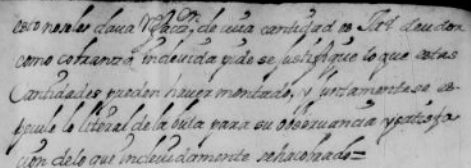 esto no se les dava de cuia cantidad es deudor
como cobranza indevida pide se justifique lo que estas
Cantidades pueden haver montado, y juntamente se es-
prule lo literal de la bula para su observancia y satisfa
cion de lo que indevidamente se ha cobrado=